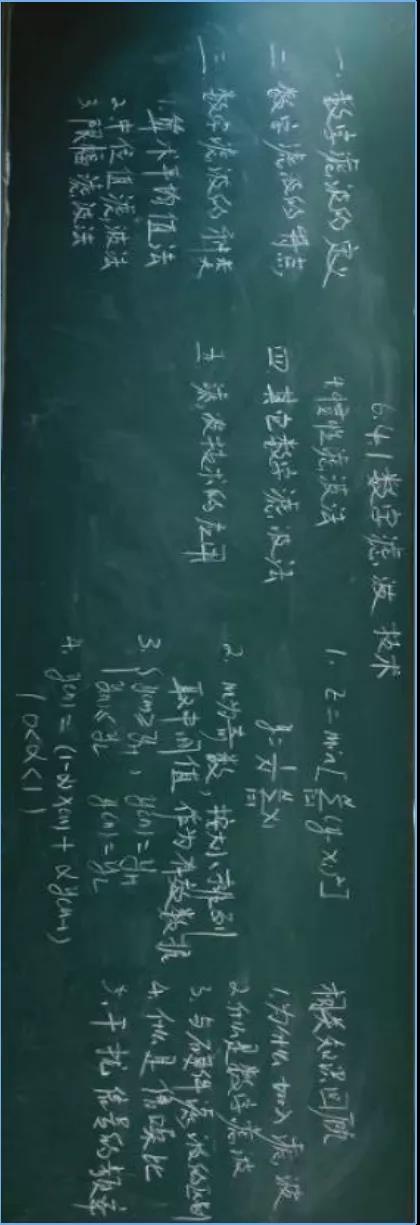 6.4.1 数字滤波技术
一. 数字滤波的定义
二 数字滤波的特点
三 数字滤波的种类
1. 算术平均值法
2. 中位值滤波法
3. 限幅滤波法
4. 惯性滤波法
四 其它数字滤波法
五 滤波技术的应用
1. Z = min[∑(y-xᵢ)²]
y = 1/N ∑xᵢ
2. m为奇数, 按大小排列
取中间值作为有效数据
3. { y(n) ≥ yH, y(n) = yH
y(n) ≤ yL y(n) = yL
4. y(n) = (1-α)x(n) + αy(n-1)
(0<α<1)
相关知识回顾
1. 为什么加入滤波
2. 什么是数字滤波
3. 与硬件滤波的区别
4. 什么是信噪比
5. 干扰信号的频率